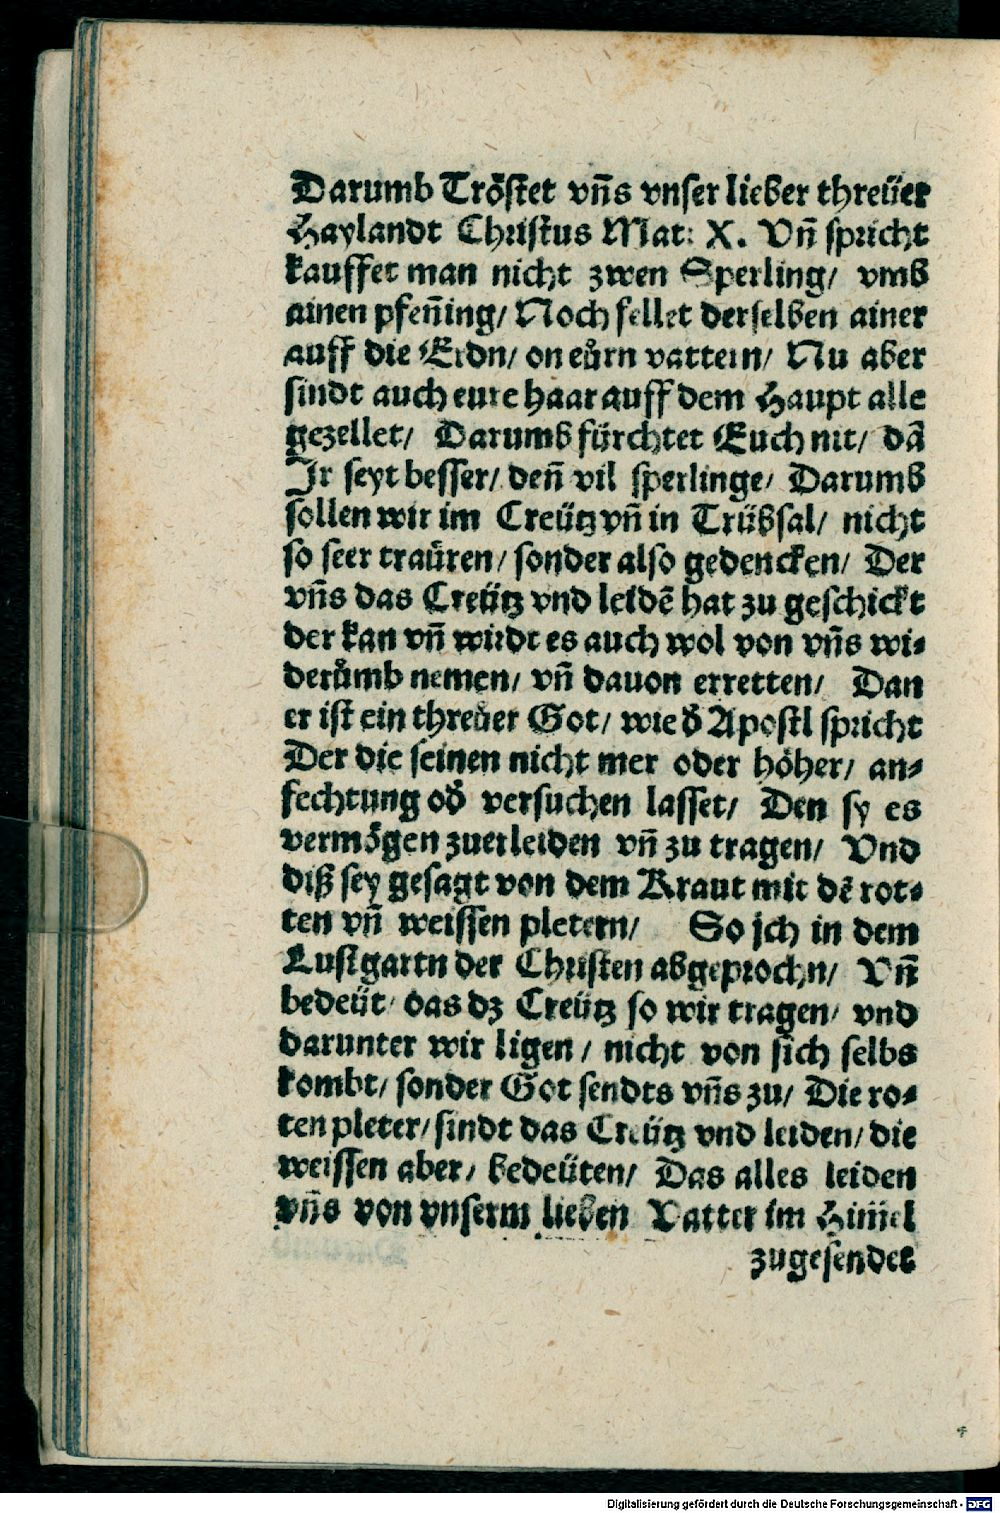 Darumb Tröſtet vñs vnſer lieber threüer
Haylandt Chriſtus Mat: X. Vñ ſpricht
kauffet man nicht zwen Sperling/ vmb
ainen pfeñing/ Noch fellet derſelben ainer
auff die Erdn/ on eůrn vattern/ Nu aber
ſindt auch eure haar auff dem Haupt alle
gezellet/ Darumb fürchtet Euch nit/ dã
Jr ſeyt beſſer/ deñ vil ſperlinge/ Darumb
ſollen wir im Creütz vñ in Trübſal/ nicht
ſo ſeer traůren/ ſonder alſo gedencken/ Der
vñs das Creütz vnd leidẽ hat zu geſchickt
der kan vñ wirdt es auch wol von vñs wi⸗
derůmb nemen/ vñ dauon erretten/ Dan
er iſt ein threůer Got/ wie d̕ Apoſtl ſpricht
Der die ſeinen nicht mer oder höher/ an⸗
fechtung od̕ verſuchen laſſet/ Den ſy es
vermögen zuerleiden vñ zu tragen/ Vnd
diß ſey geſagt von dem Kraut mit dẽ rot⸗
ten vñ weiſſen pletern/ So jch in dem
Luſtgartn der Chriſten abgeprochn/ Vñ
bedeüt/ das dz Creütz ſo wir tragen/ vnd
darunter wir ligen/ nicht von ſich ſelbs
kombt/ ſonder Got ſendts vñs zu/ Die ro⸗
ten pleter/ ſindt das Creütz vnd leiden/ die
weiſſen aber/ bedeüten/ Das alles leiden
vñs von vnſerm lieben Vatter im Him̃el
zugeſendet
Digitalisierung gefördert durch die Deutsche Forschungsgemeinschaft - DFG